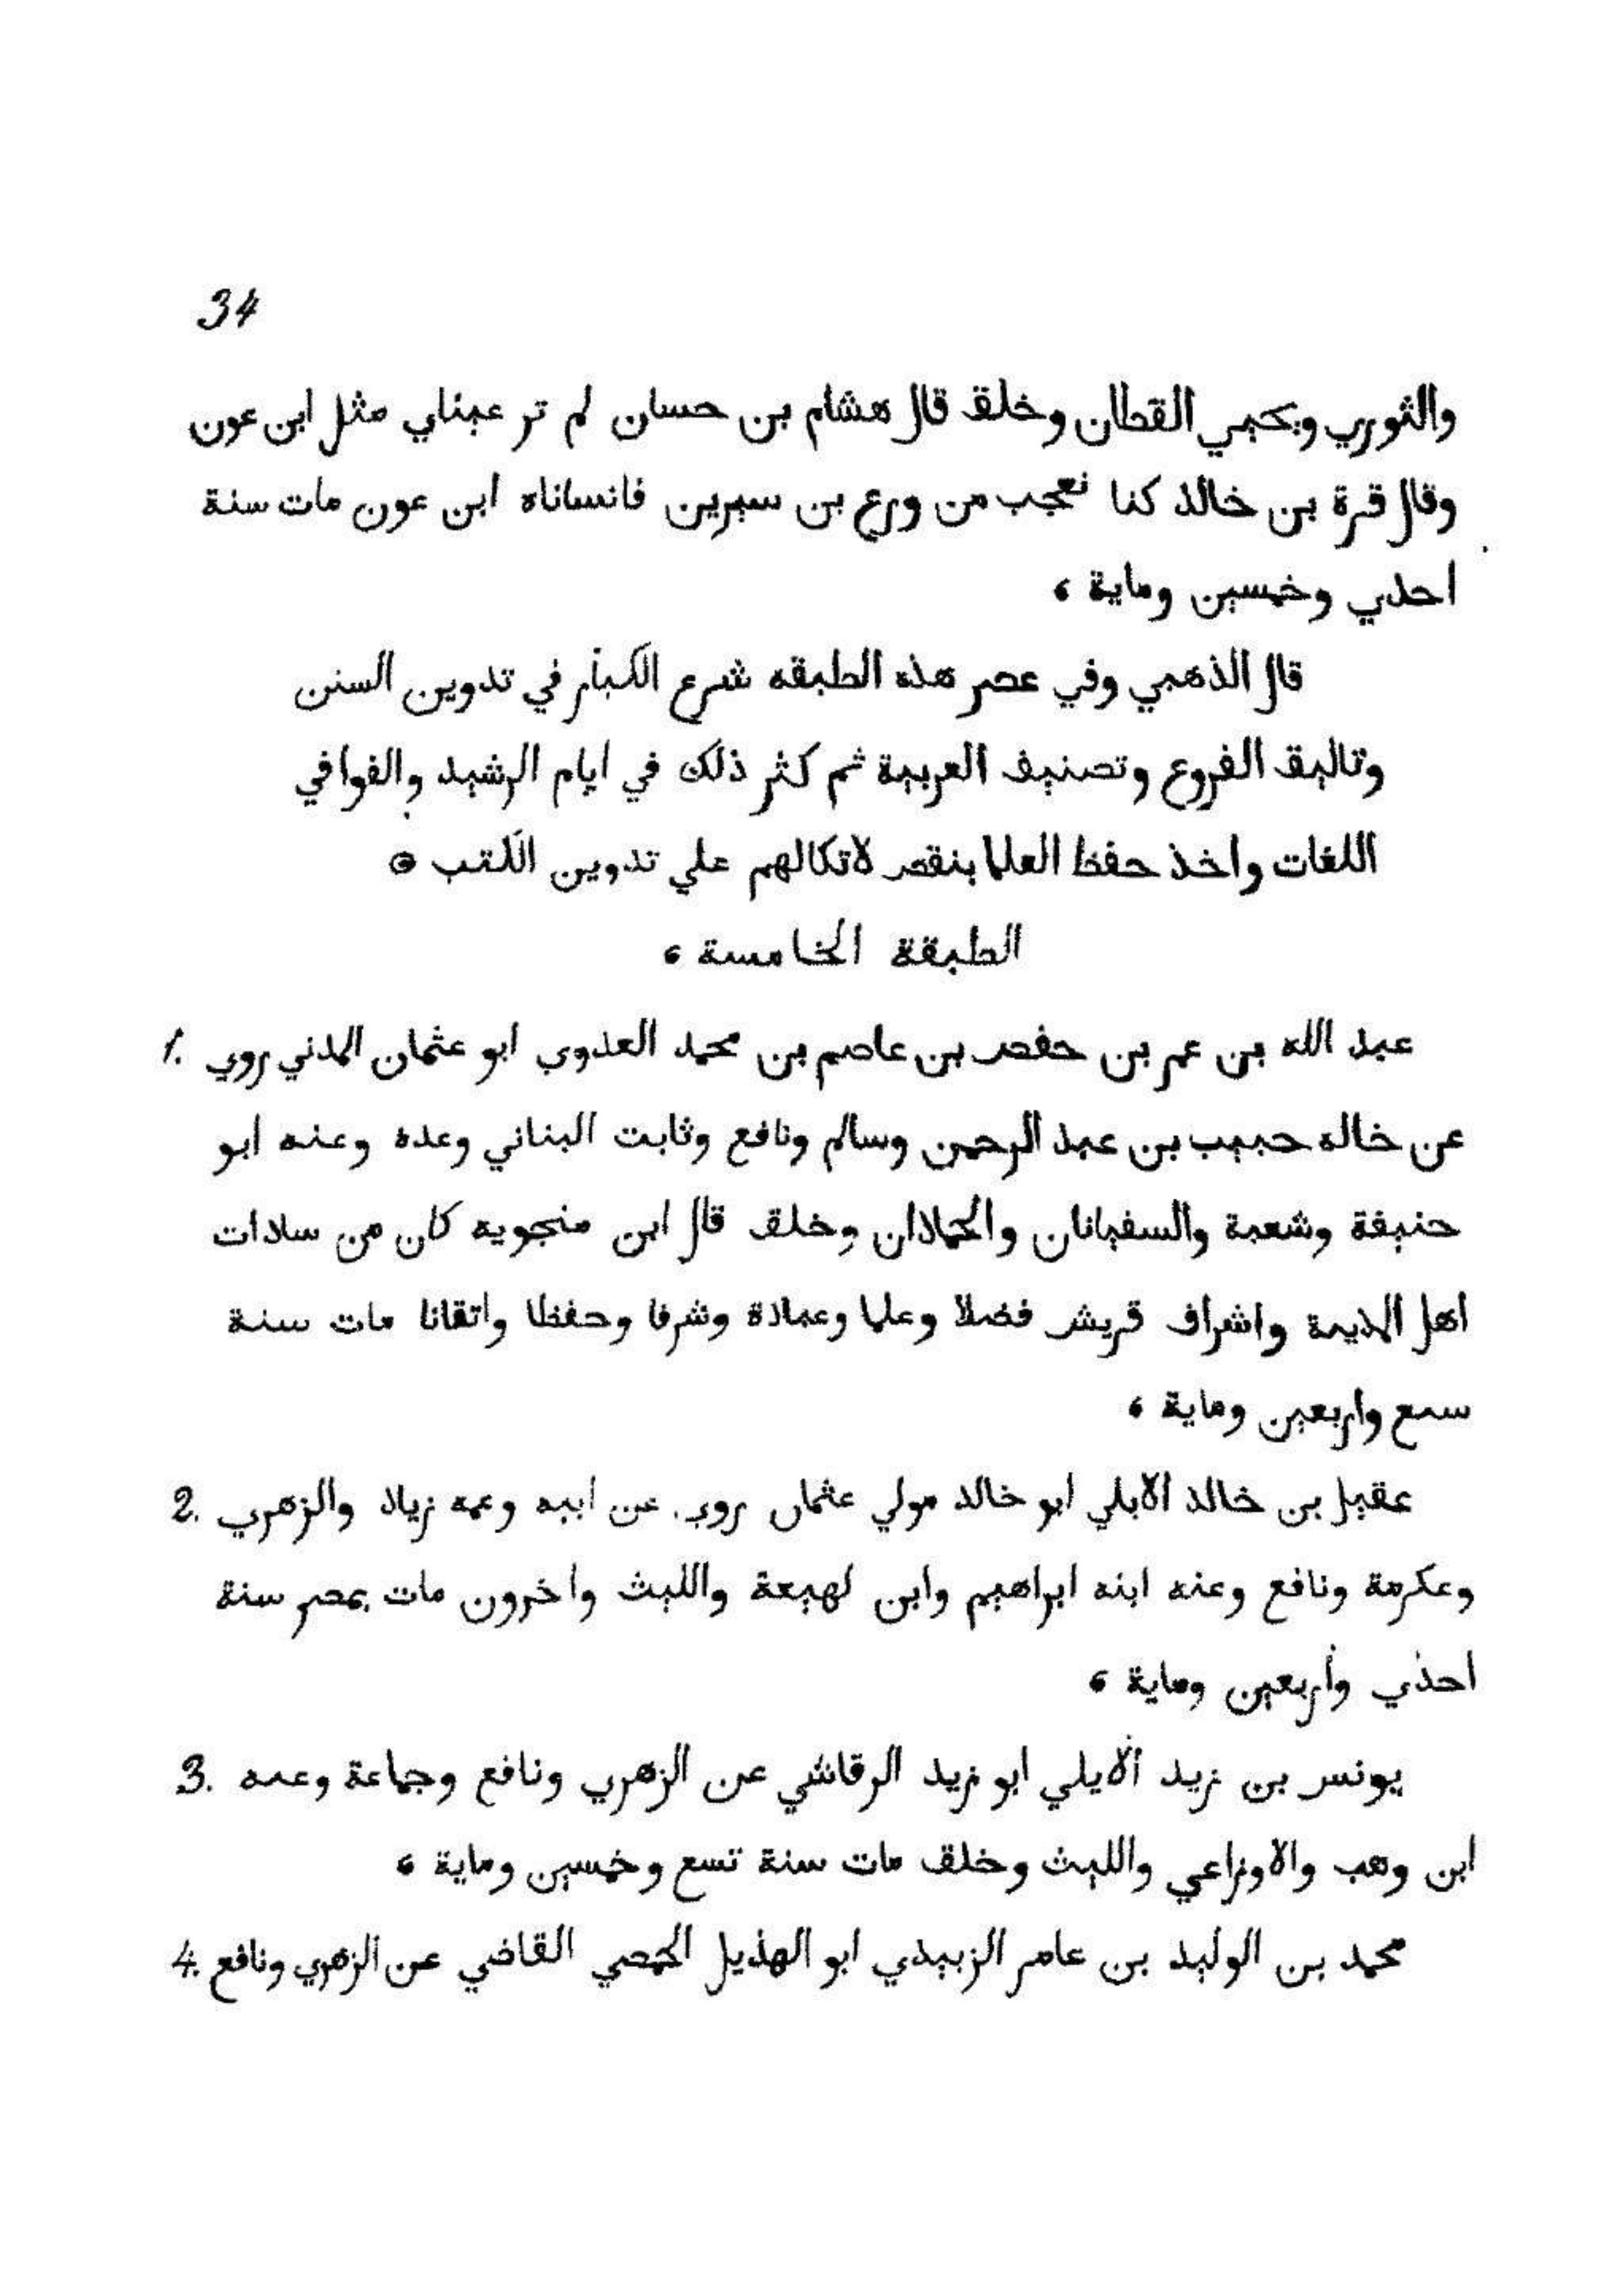 34
والثوري ويحيي القطان وخلق قال هشام بن حسان لم تر عيناي مثل ابن عون
وقال قرة بن خالد كنا نعجب من ورع بن سيرين فانساناه ابن عون مات سنة
احدي وخمسين وماية ،
قال الذهبي وفي عصر هذه الطبقه شرع الكبار في تدوين السنن
وتاليف الفروع وتصنيف العربية ثم كثر ذلك في ايام الرشيد والفوا في
اللغات واخذ حفظ العلما ينقص لاتكالهم علي تدوين الكتب ۞
الطبقة الخامسة ،
1. عبد الله بن عمر بن حفص بن عاصم بن محمد العدوي ابو عثمان المدني روي
عن خاله حبيب بن عبد الرحمن وسالم ونافع وثابت البناني وعده وعنه ابو
حنيفة وشعبة والسفيانان والحمادان وخلق قال ابن منجويه كان من سادات
اهل المدينة واشراف قريش فضلا وعلما وعبادة وشرفا وحفظا واتقانا مات سنة
سبع واربعين وماية ،
2. عقيل بن خالد الايلي ابو خالد مولي عثمان روي عن ابيه وعمه زياد والزهري
وعكرمة ونافع وعنه ابنه ابراهيم وابن لهيعة والليث واخرون مات بمصر سنة
احدي وأربعين وماية ،
3. يونس بن زيد الايلي ابو زيد الرقاشي عن الزهري ونافع وجماعة وعنه
ابن وهب والاوزاعي والليث وخلق مات سنة تسع وخمسين وماية ،
4. محمد بن الوليد بن عامر الزبيدي ابو الهذيل الحمصي القاضي عن الزهري ونافع